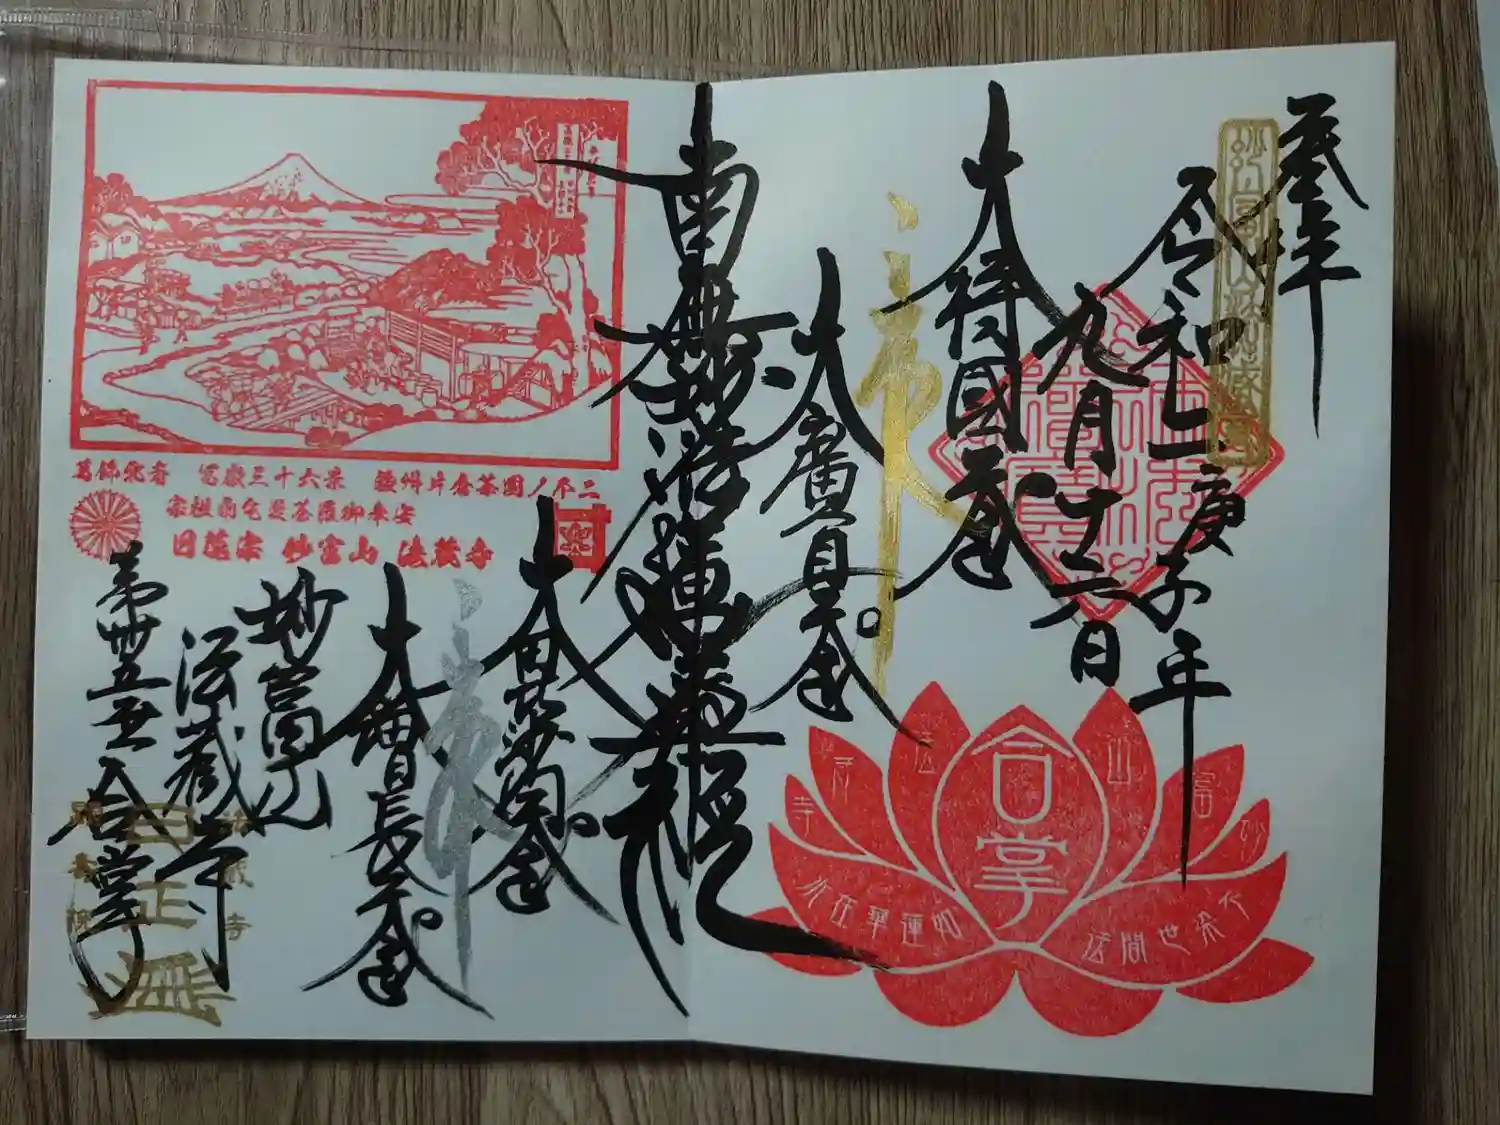 参拝
令和二庚子年
九月十六日
大持國天王
大廣目天王
南無妙法蓮華經
大毘沙門天王
大増長天王
妙富山
法蔵寺
第卅五世 合掌
葛飾北斎 冨嶽三十六景 駿州片倉茶園ノ不二
日蓮宗 妙富山 法蔵寺
合掌
妙富山法蔵寺
不染世間法
如蓮華在水
日正